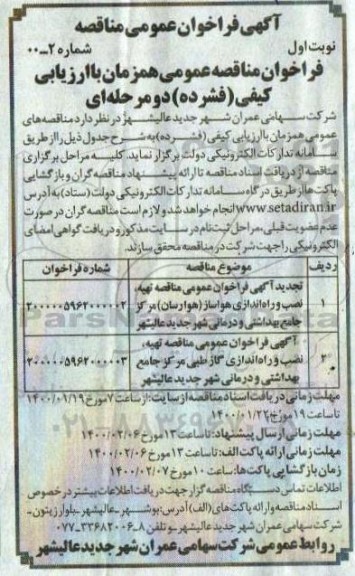 آگهی فراخوان عمومی مناقصه
نوبت اول
شماره ۲ــ۰۰
فراخوان مناقصه عمومی همزمان با ارزیابی
کیفی (فشرده) دو مرحله‌ای
شرکت سهامی عمران شهر جدید عالیشهر در نظر دارد مناقصه‌های
عمومی همزمان با ارزیابی کیفی (فشرده) به شرح جدول ذیل را از طریق
سامانه تدارکات الکترونیکی دولت برگزار نماید. کلیه مراحل برگزاری
مناقصه از دریافت اسناد مناقصه تا ارائه پیشنهاد مناقصه گران و بازگشایی
پاکت‌ها از طریق درگاه سامانه تدارکات الکترونیکی دولت (ستاد) به آدرس
www.setadiran.ir انجام خواهد شد و لازم است مناقصه گران در صورت
عدم عضویت قبلی، مراحل ثبت نام در سایت مذکور و دریافت گواهی امضای
الکترونیکی را جهت شرکت در مناقصه محقق سازند.
ردیف موضوع مناقصه شماره فراخوان
تجدید آگهی فراخوان عمومی مناقصه تهیه،
۱ نصب و راه‌اندازی هواساز (هوارسان) مرکز ۲۰۰۰۰۰۵۹۶۲۰۰۰۰۰۲
جامع بهداشتی و درمانی شهر جدید عالیشهر
آگهی فراخوان عمومی مناقصه تهیه،
۲ نصب و راه‌اندازی گاز طبی مرکز جامع ۲۰۰۰۰۰۵۹۶۲۰۰۰۰۰۳
بهداشتی و درمانی شهر جدید عالیشهر
مهلت زمانی دریافت اسناد مناقصه از سایت: از ساعت ۷ مورخ ۱۴۰۰/۰۱/۱۹
تا ساعت ۱۹ مورخ ۱۴۰۰/۰۱/۲۲
مهلت زمانی ارسال پیشنهاد: تا ساعت ۱۳ مورخ ۱۴۰۰/۰۲/۰۶
مهلت زمانی ارائه پاکت الف: تا ساعت ۱۳ مورخ ۱۴۰۰/۰۲/۰۶
زمان بازگشایی پاکت‌ها: ساعت ۱۰ مورخ ۱۴۰۰/۰۲/۰۷
اطلاعات تماس دستگاه مناقصه گزار جهت دریافت اطلاعات بیشتر در خصوص
اسناد مناقصه و ارائه پاکت‌های (الف) آدرس: بوشهر ــ عالیشهر ــ بلوار زیتون ــ
شرکت سهامی عمران شهر جدید عالیشهر ــ و تلفن ۸ـ۰۷۷۳۳۶۸۲۰۰۶
روابط عمومی شرکت سهامی عمران شهر جدید عالیشهر